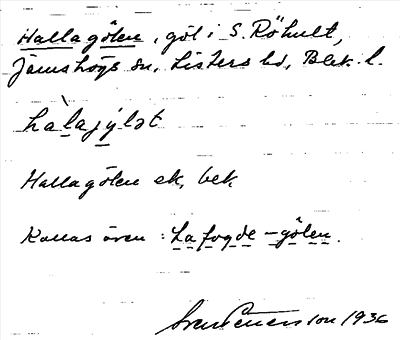 Hallagölen, göl i S. Röhult,
Jämshögs sn, Listers hd, Blek. l.
halagýlǝt
Hallagölen ek, bek
Kallas även: Lafogde-gölen.
Sven Peterson 1936